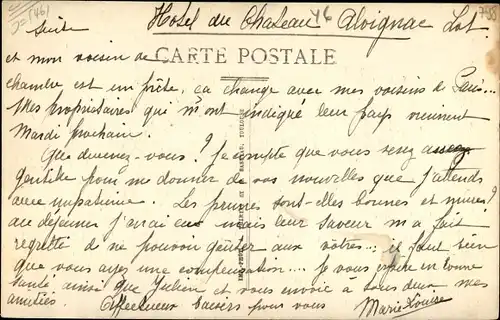 Suite
Hotel du Chateau Alvignac Lot.
CARTE POSTALE
et mon voisin de
chambre est un prêtre, ça change avec mes voisins de Paris...
Mes propriétaires qui m'ont indiqué leur pays viennent
Mardi prochain.
Que devenez-vous? Je compte que vous serez assez
gentille pour me donner de vos nouvelles que j'attends
avec impatience. Les prunes sont-elles bonnes et mures?
au déjeuner j'en ai eu mais leur saveur m'a fait
regretter de ne pouvoir goûter aux votres... il faut bien
que vous ayez une compensation... Je vous espère en bonne
santé ainsi que Julien et vous envoie à tous deux mes
amitiés. Affectueux baisers pour vous Marie-Louise